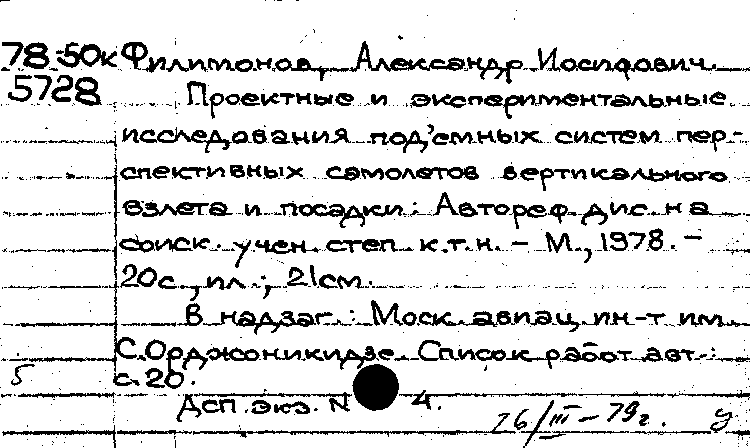 78-50к Филимонов, Александр Иосифович.
5728 Проектные и экспериментальные
исследования под'емных систем пер-
спективных самолетов вертикального
взлета и посадки: Автореф. дис. на
соиск. учен. степ. к.т.н. - М., 1978. -
20с., ил.; 21см.
В надзаг.: Моск. авиац. ин-т им.
С. Орджоникидзе. Список работ авт.:
5 с.20.
Дсп. экз. N 4.
26/III-79г. У